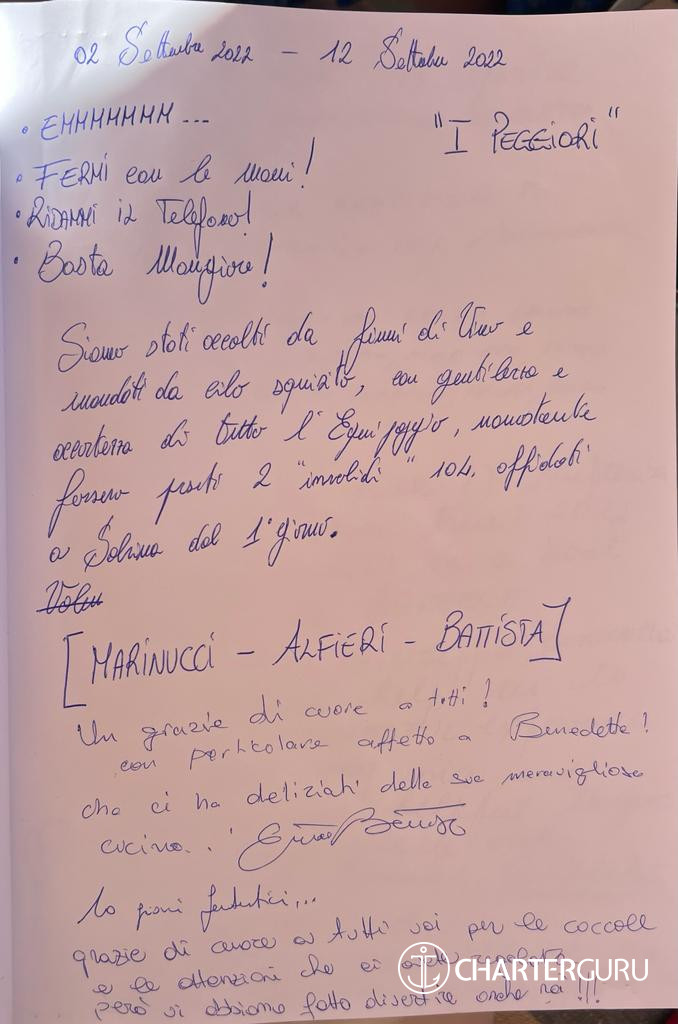 02 Settembre 2022 - 12 Settembre 2022
• EHHHHHHH...
"I PEGGIORI"
• FERMI con le mani!
• RIDAMMI il Telefono!
• Basta Mangiare!
Siamo stati accolti da fiumi di Vino e
inondati da cibo squisito, con gentilezza e
accortezza di tutto l'Equipaggio, nonostante
fossero presenti 2 "invalidi" 104. affidati
a Sabrina dal 1° giorno.
[MARINUCCI - ALFIERI - BATTISTA]
Un grazie di cuore a tutti!
con particolare affetto a Benedetta!
che ci ha deliziati delle sue meravigliose
cucina..!
10 giorni fantastici...
grazie di cuore a tutti voi per le coccole
e le attenzioni che ci avete
però vi abbiamo fatto divertire anche noi!!!
CHARTERGURU